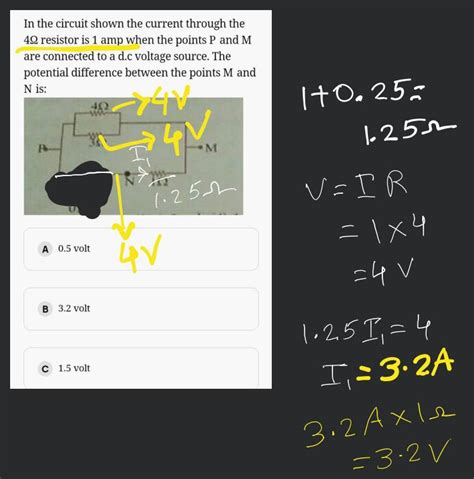 In the circuit shown the current through the
4Ω resistor is 1 amp when the points P and M
are connected to a d.c voltage source. The
potential difference between the points M and
N is:
4Ω
4V
3Ω
4V
P
M
I₁
N
1.25Ω
4V
A 0.5 volt
B 3.2 volt
C 1.5 volt
1+0.25=
1.25Ω
V=IR
=1×4
=4V
1.25I₁=4
I₁=3.2A
3.2A×1Ω
=3.2V